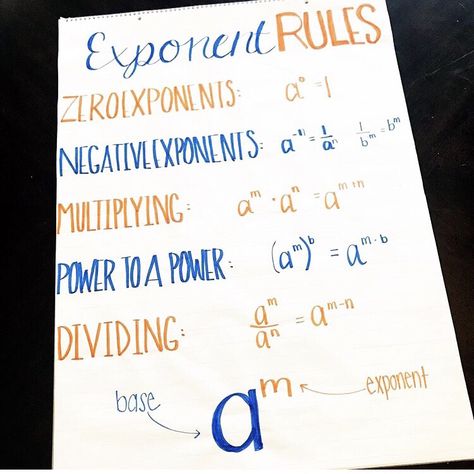 Exponent RULES
ZERO EXPONENTS: a⁰ = 1
NEGATIVE EXPONENTS: a⁻ⁿ = 1/aⁿ 1/bᵐ = bᵐ
MULTIPLYING: aᵐ · aⁿ = aᵐ⁺ⁿ
POWER TO A POWER: (aᵐ)ᵇ = aᵐ·ᵇ
DIVIDING: aᵐ/aⁿ = aᵐ⁻ⁿ
base aᵐ exponent